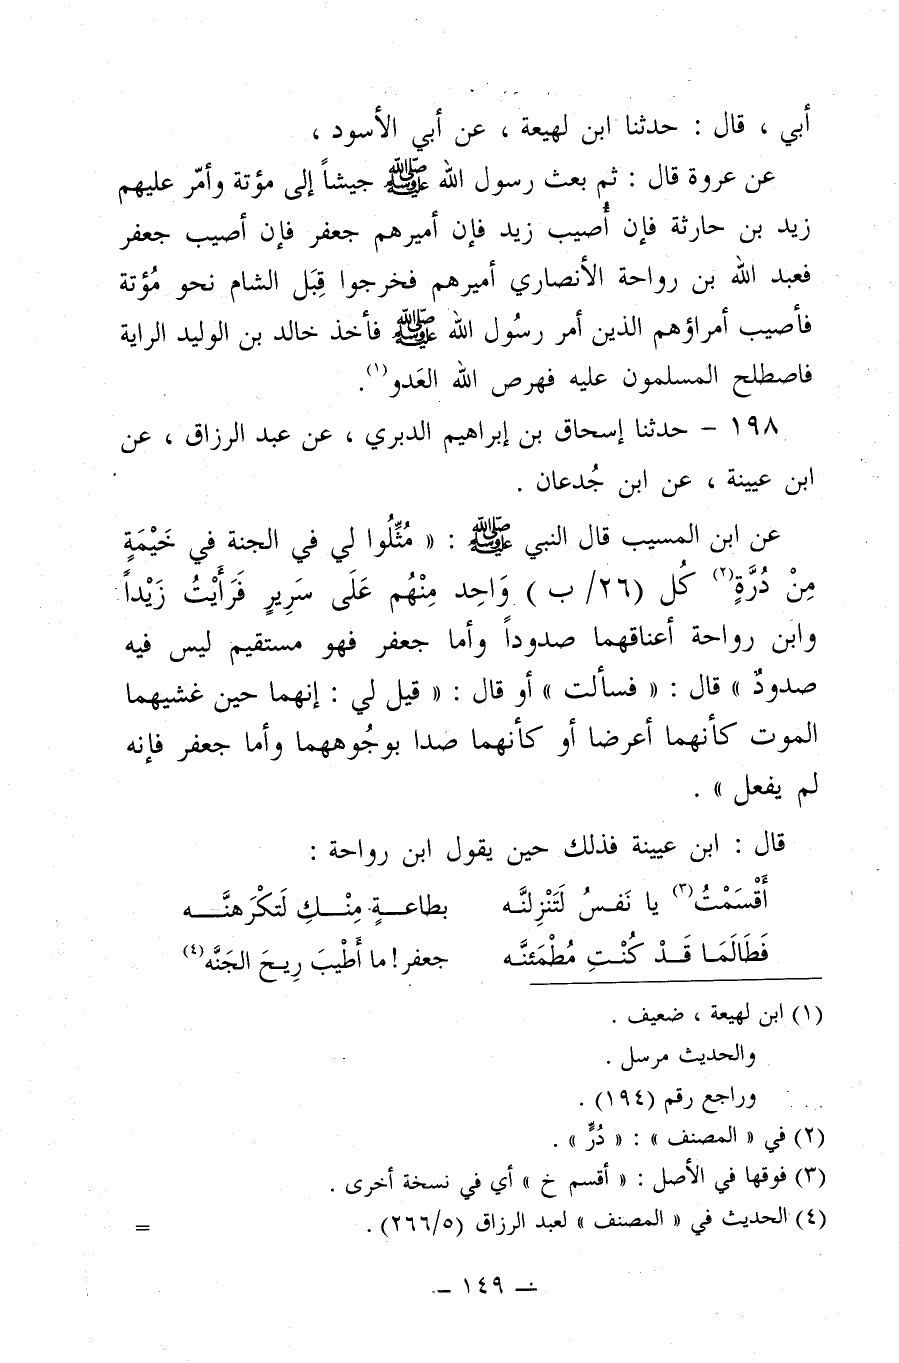 أبي ، قال : حدثنا ابن لهيعة ، عن أبي الأسود ،
عن عروة قال : ثم بعث رسول الله ﷺ جيشاً إلى مؤتة وأمّر عليهم
زيد بن حارثة فإن أُصيب زيد فإن أميرهم جعفر فإن أصيب جعفر
فعبد الله بن رواحة الأنصاري أميرهم فخرجوا قِبَل الشام نحو مُؤتة
فأصيب أمراؤهم الذين أمر رسُول الله ﷺ فأخذ خالد بن الوليد الراية
فاصطلح المسلمون عليه فهرص الله العَدو(١).
١٩٨ – حدثنا إسحاق بن إبراهيم الدبري ، عن عبد الرزاق ، عن
ابن عيينة ، عن ابن جُدعان .
عن ابن المسيب قال النبي ﷺ : « مُثِّلُوا لي في الجنة في خَيْمَةٍ
مِنْ دُرَّةٍ(٢) كُل (٢٦/ ب ) وَاحِد مِنْهُم عَلَى سَرِيرٍ فَرَأَيْتُ زَيْداً
وابن رواحة أعناقهما صدوداً وأما جعفر فهو مستقيم ليس فيه
صدودٌ » قال : « فسألت » أو قال : « قيل لي : إنهما حين غشيهما
الموت كأنهما أعرضا أو كأنهما صدا بوجُوههما وأما جعفر فإنه
لم يفعل » .
قال : ابن عيينة فذلك حين يقول ابن رواحة :
أَقْسَمْتُ(٣) يا نَفسُ لَتَنْزِلنَّه بطاعةٍ مِنْكِ لَتكْرَهنَّه
فَطَالَمَا قَدْ كُنْتِ مُطْمَئنَّه جعفر! ما أَطْيبَ رِيحَ الجَنَّه(٤)
(١) ابن لهيعة ، ضعيف .
والحديث مرسل .
وراجع رقم (١٩٤) .
(٢) في « المصنف » : « دُرٍّ » .
(٣) فوقها في الأصل : « أقسم خ » أي في نسخة أخرى .
(٤) الحديث في « المصنف » لعبد الرزاق (٢٦٦/٥) . =
– ١٤٩ –